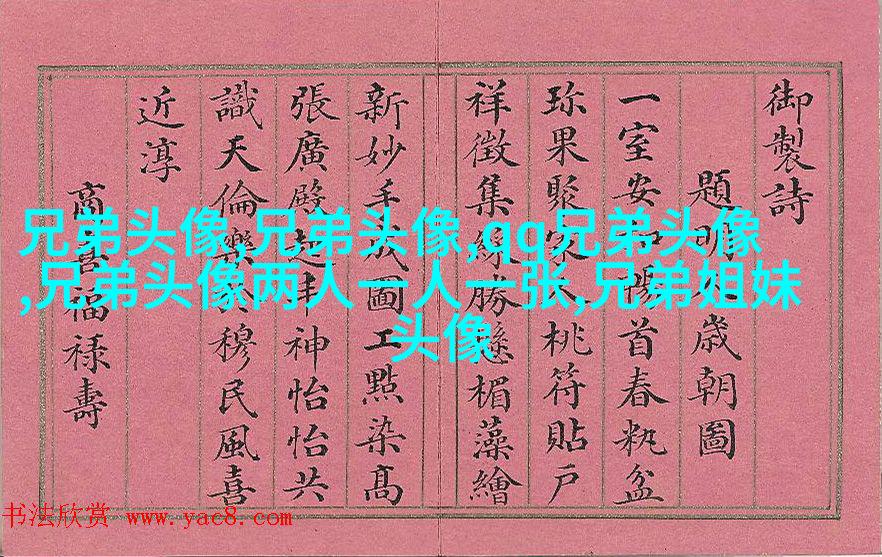 御製詩
題明歲朝圖
一室安首春執盆
珎果聚桃符貼戶
祥徵集綵勝懸楣藻繪
新妙手成圖工點染高
張廣殿起神怡怡共
識天倫樂穆民風喜
近淳
商喜福祿壽
兄弟头像,兄弟头像,qq兄弟头像
,兄弟头像两人一人一张,兄弟姐妹
头像
书法欣赏 www.yac8.com